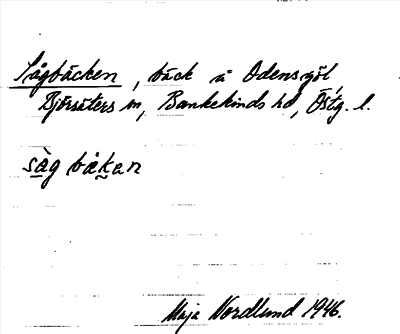 Sågbäcken, bäck å Odensgöl
Björsäters sn, Bankekinds hd, Östg. l.
såg bäkan
Maja Nordlund 1946.